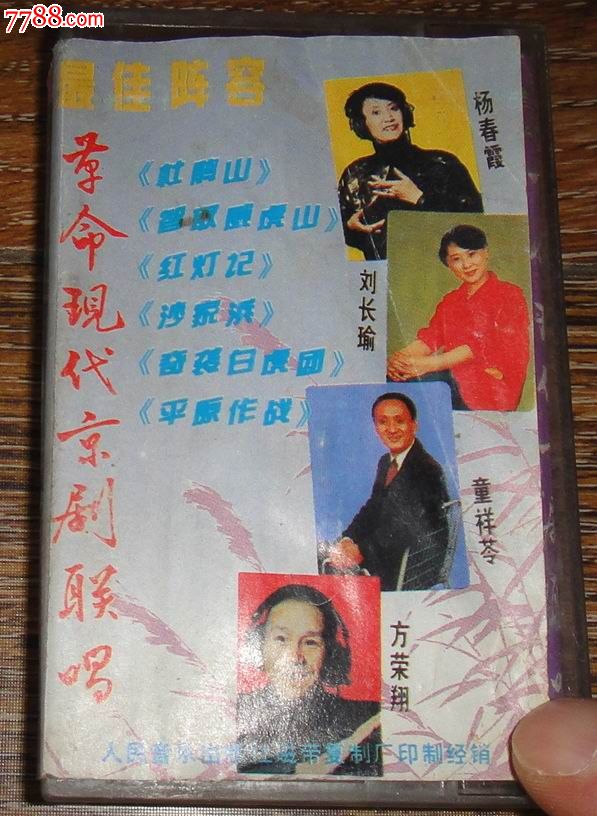 7788.com
最佳阵容
革命現代京剧联唱
《杜鹃山》
《智取威虎山》
《红灯记》
《沙家浜》
《奇袭白虎团》
《平原作战》
杨春霞
刘长瑜
童祥苓
方荣翔
人民音乐出版社磁带复制厂印制经销